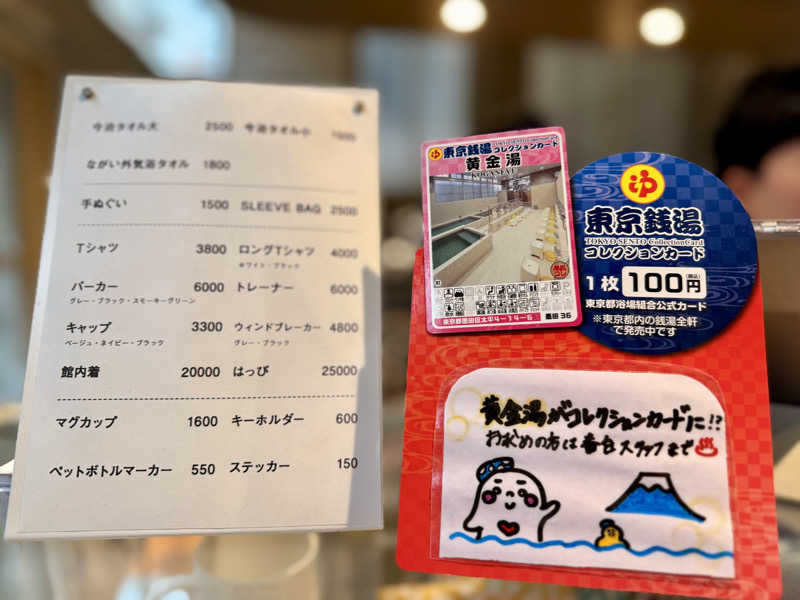 今治タオル大 2500 今治タオル小
ながい外気浴タオル 1800
手ぬぐい 1500 SLEEVE BAG 2500
Tシャツ 3800 ロングTシャツ 4000
ホワイト・ブラック
パーカー 6000 トレーナー 6000
グレー・ブラック・スモーキーグリーン
キャップ 3300 ウィンドブレーカー 4800
ベージュ・ネイビー・ブラック グレー・ブラック
館内着 20000 はっぴ 25000
マグカップ 1600 キーホルダー 600
ペットボトルマーカー 550 ステッカー 150
ゆ 東京銭湯 TOKYO SENTO CollectionCard
コレクションカード
黄金湯
KOGANEYU
東京都墨田区太平4-14-5 墨田 36
ゆ
東京銭湯
TOKYO SENTO CollectionCard
コレクションカード
1枚 100円(税込)
東京都浴場組合公式カード
※東京都内の銭湯全軒
で発売中です
黄金湯がコレクションカードに!?
お求めの方は番台スタッフまで♨